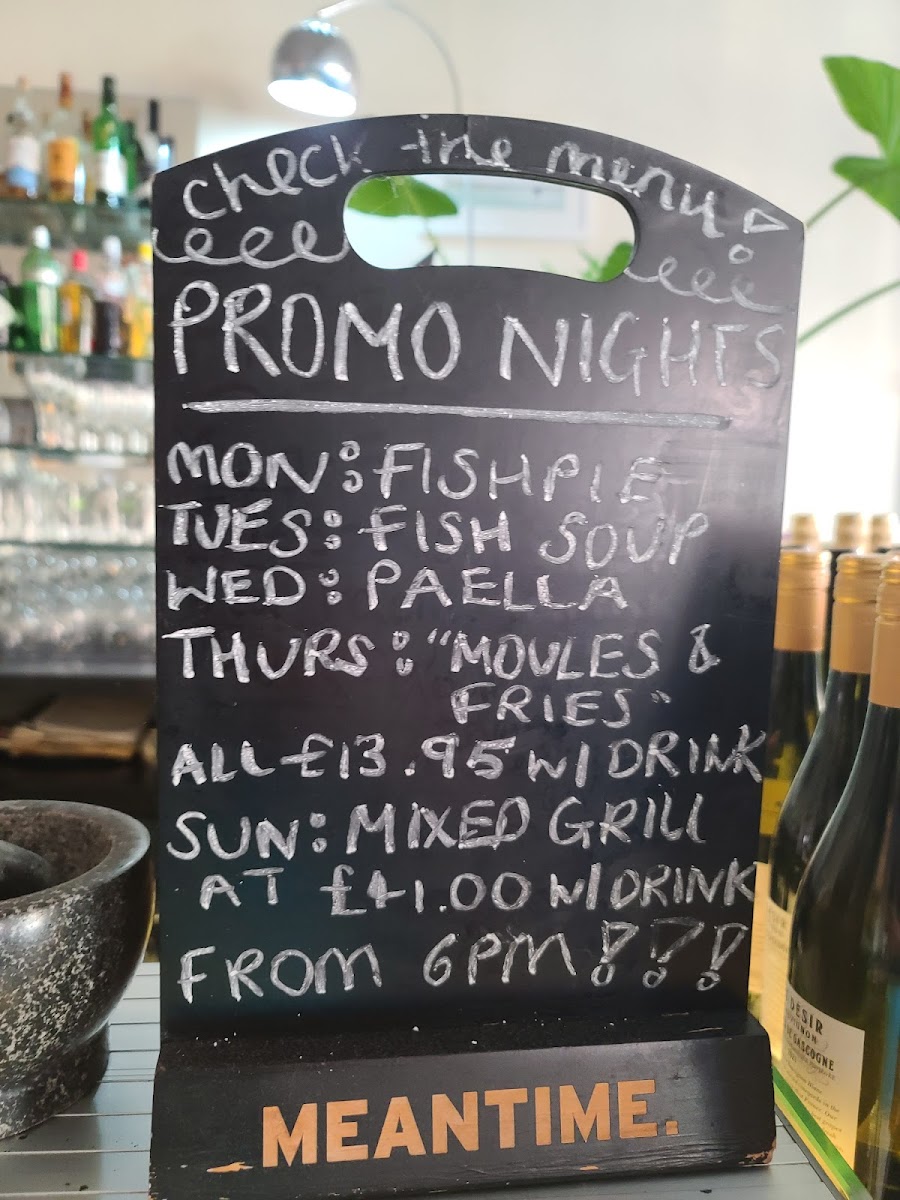 check the menu!
PROMO NIGHTS
MON: FISHPIE
TUES: FISH SOUP
WED: PAELLA
THURS: "MOULES &
FRIES"
ALL £13.95 W/DRINK
SUN: MIXED GRILL
AT £41.00 W/DRINK
FROM 6PM!!!
MEANTIME.
DÉSIR
GASCOGNE